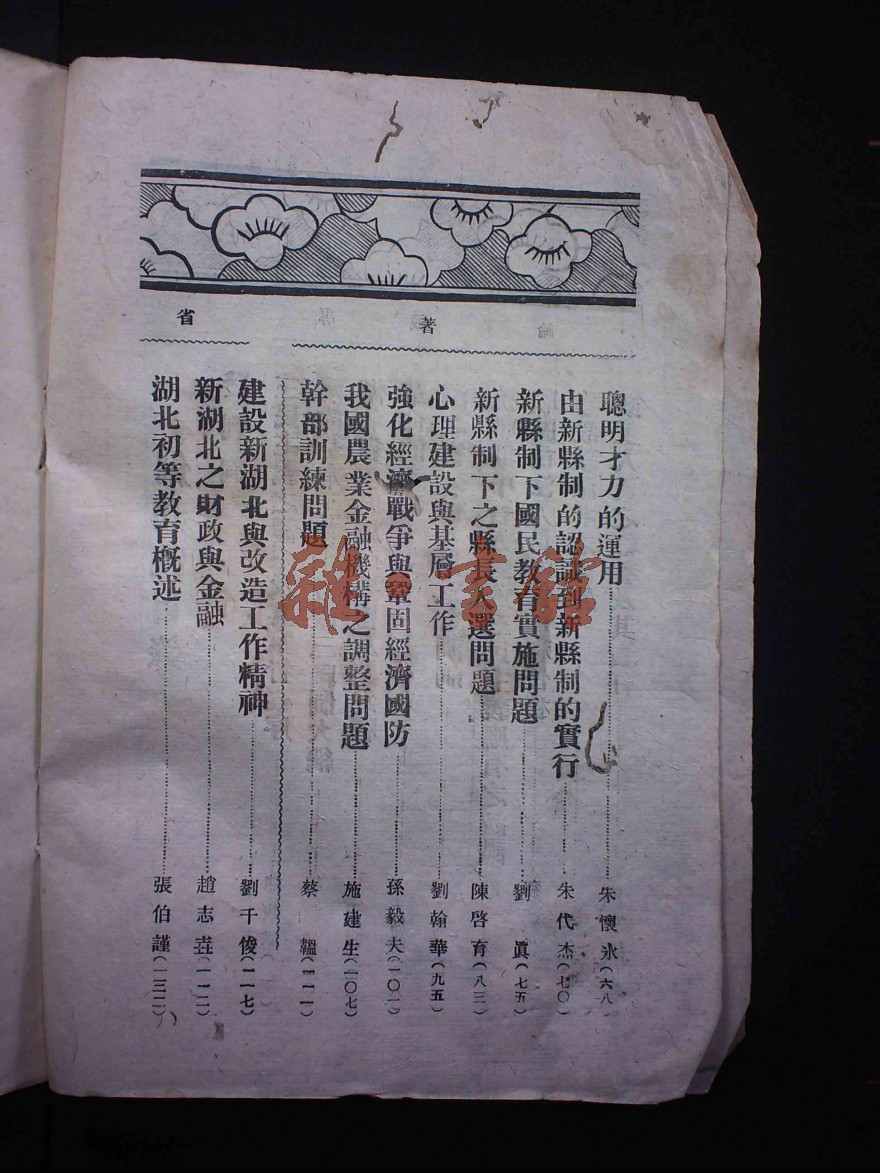 著
聰明才力的運用 朱懷冰(六八)
由新縣制的認識到新縣制的實行 朱代杰(七〇)
新縣制下國民教育實施問題 劉真(七五)
新縣制下之縣長人選問題 陳啓育(八三)
心理建設與基層工作 劉翰華(九五)
強化經濟戰爭與鞏固經濟國防 孫毅夫(一〇一)
我國農業金融機構之調整問題 施建生(一〇七)
幹部訓練問題 蔡韞(一一一)
省
建設新湖北與改造工作精神 劉千俊(一一七)
新湖北之財政與金融 趙志垚(一二二)
湖北初等教育概述 張伯謹(一三二)
雜·書館